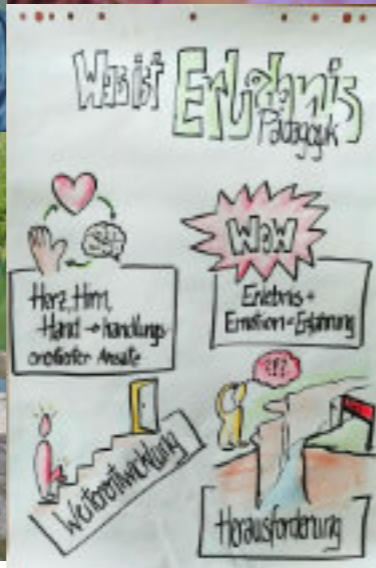 Was ist Erlebnis
Pädagogik
Herz, Hirn,
Hand → handlungs
orientierter Ansatz
WOW
Erlebnis +
Emotion = Erfahrung
Weiterentwicklung
?!?
Herausforderung